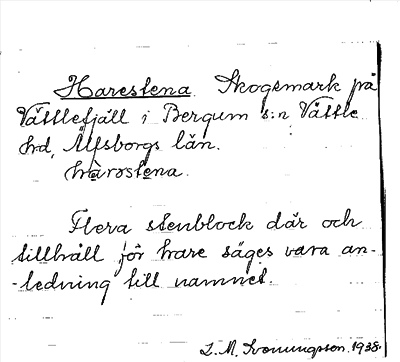 Harestena Skogsmark på
Vättlefjäll i Bergum s:n Vättle
hd, Älfsborgs län.
hàrəstena.
Flera stenblock där och
tillhåll för hare säges vara an-
-ledning till namnet.
L. M. 1938.